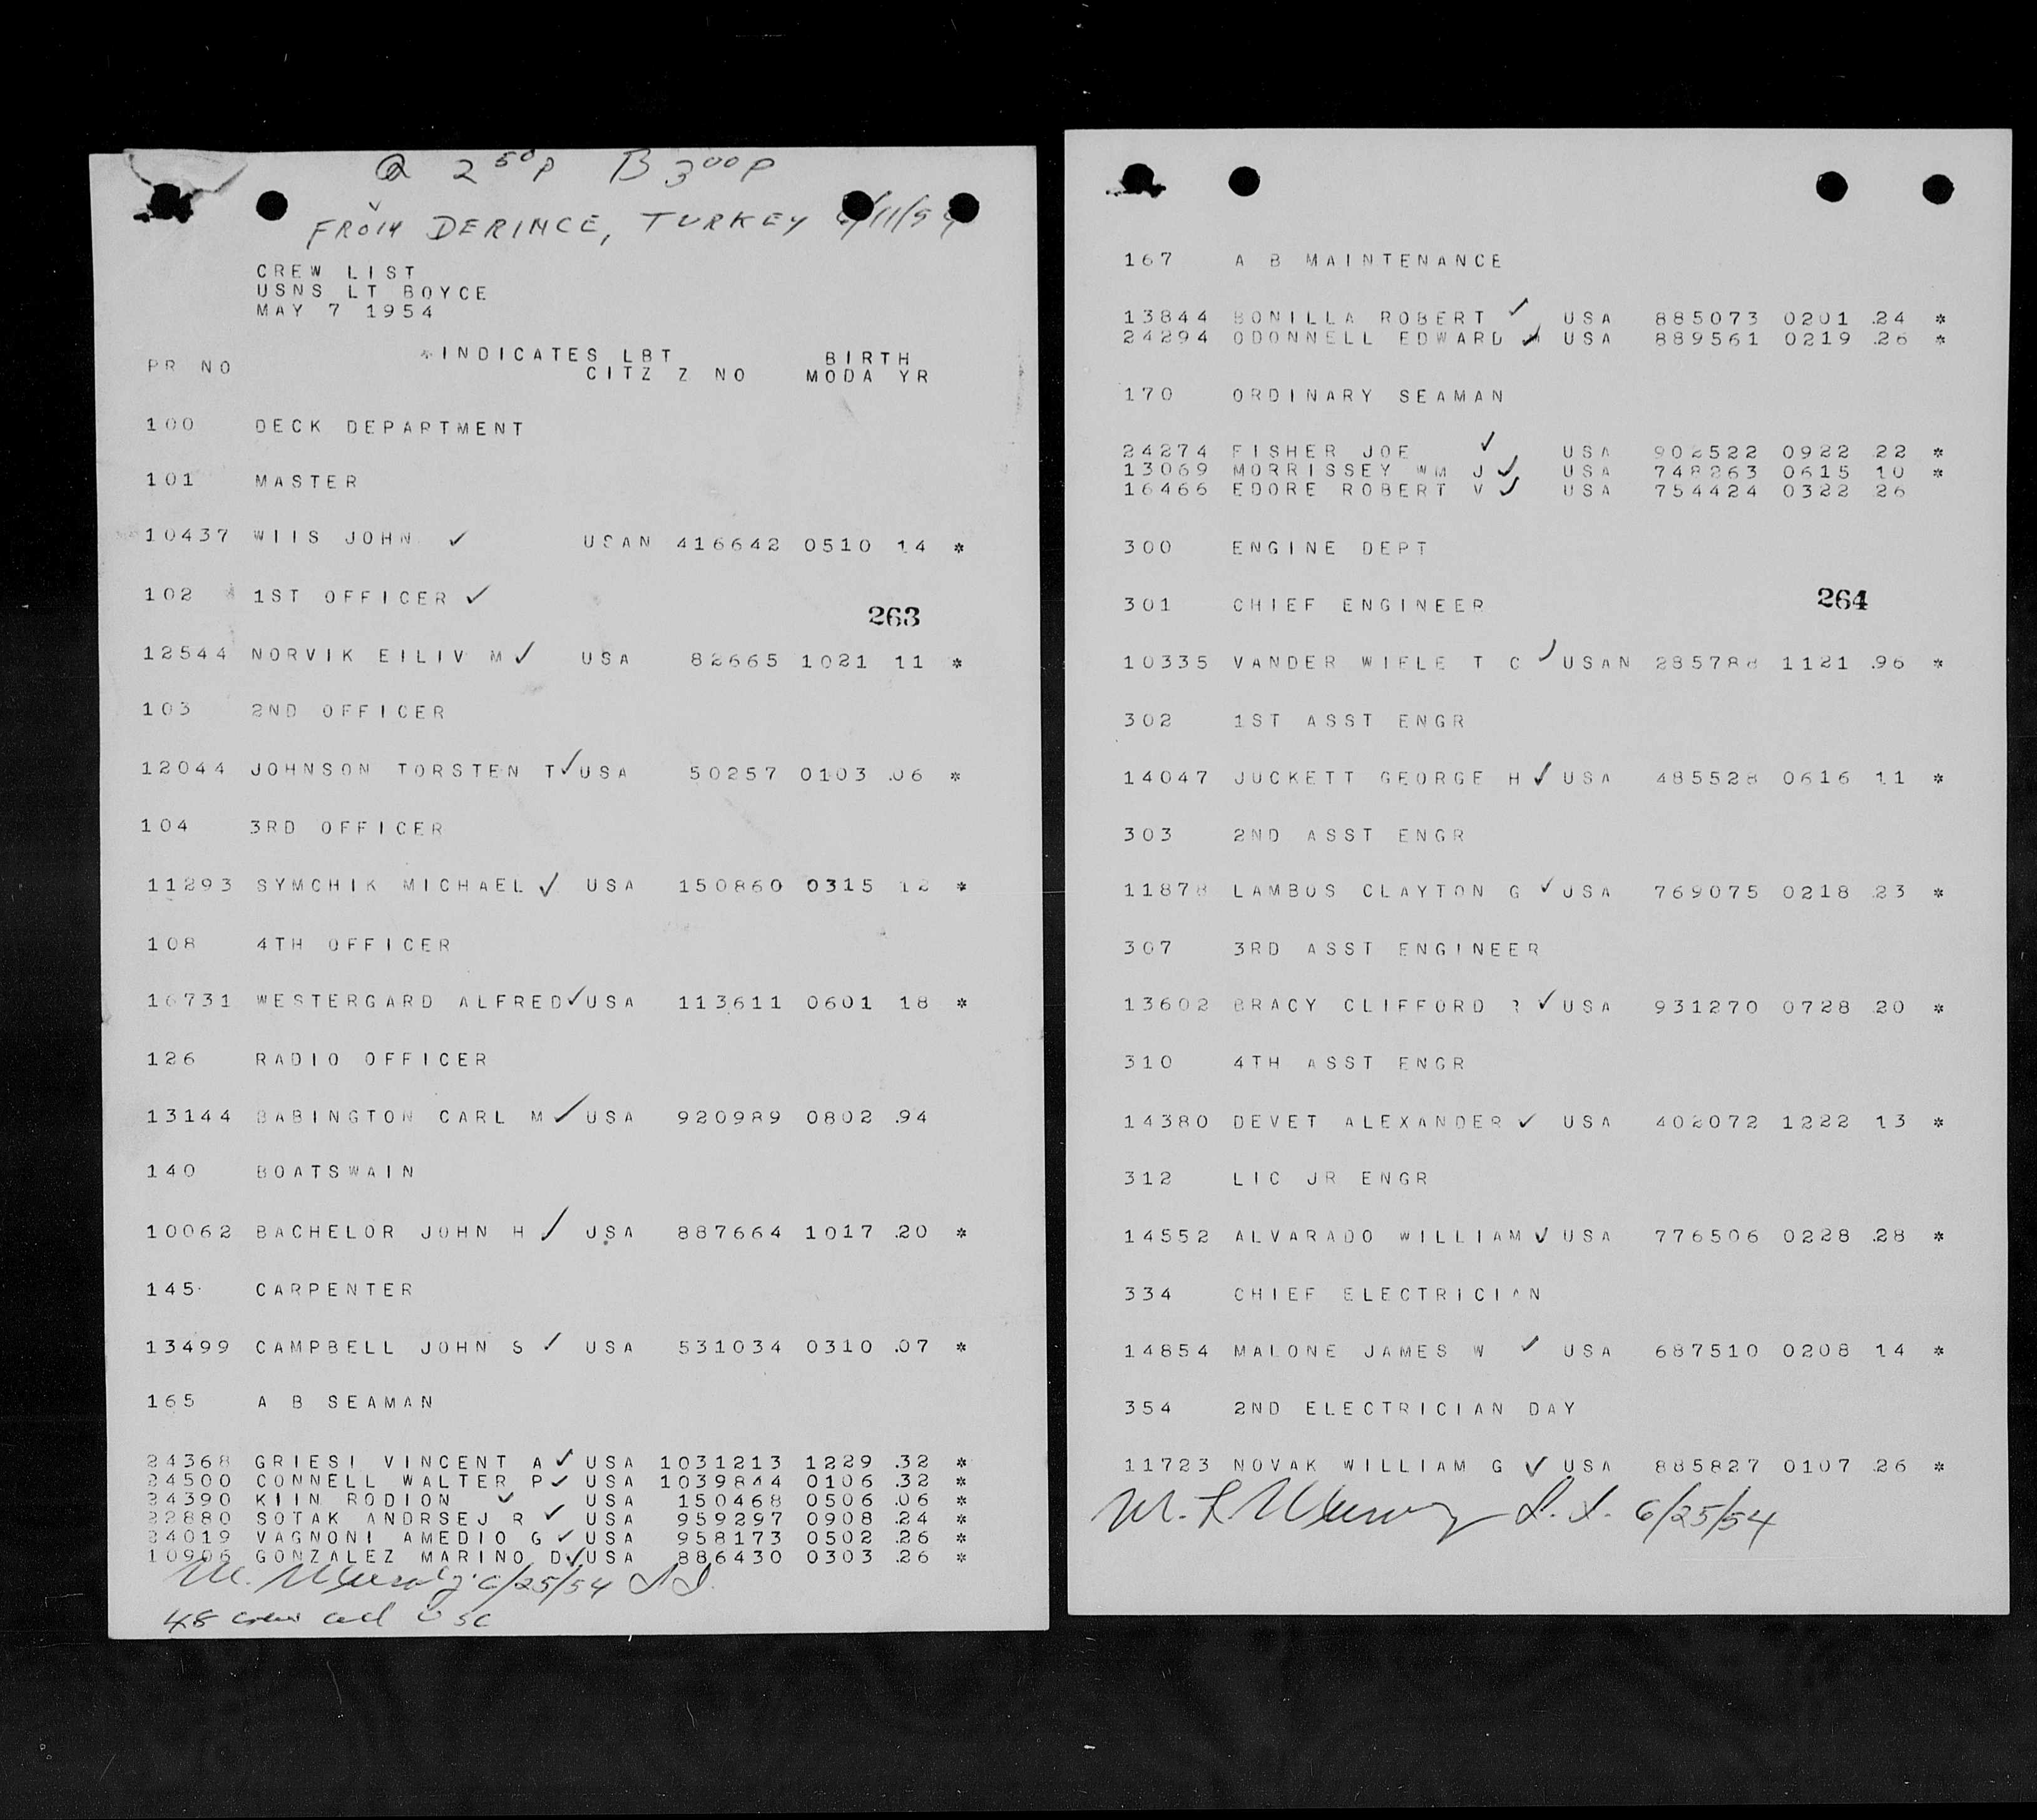 Q 2 50 P B 3 00 P
FROM DERINCE, TURKEY 6/11/54
CREW LIST
USNS LT BOYCE
MAY 7 1954
*INDICATES LBT BIRTH
PR NO CITZ Z NO MODA YR
100 DECK DEPARTMENT
101 MASTER
10437 WIIS JOHN ✓ USAN 416642 0510 14 *
102 1ST OFFICER ✓
263
12544 NORVIK EILIV M ✓ USA 82665 1021 11 *
103 2ND OFFICER
12044 JOHNSON TORSTEN T ✓ USA 50257 0103 .06 *
104 3RD OFFICER
11293 SYMCHIK MICHAEL ✓ USA 150860 0315 12 *
108 4TH OFFICER
16731 WESTERGARD ALFRED ✓ USA 113611 0601 18 *
126 RADIO OFFICER
13144 BABINGTON CARL M ✓ USA 920989 0802 .94
140 BOATSWAIN
10062 BACHELOR JOHN H ✓ USA 887664 1017 .20 *
145 CARPENTER
13499 CAMPBELL JOHN S ✓ USA 531034 0310 .07 *
165 A B SEAMAN
24368 GRIESI VINCENT A ✓ USA 1031213 1229 .32 *
24500 CONNELL WALTER P ✓ USA 1039844 0106 .32 *
24390 KIIN RODION ✓ USA 150468 0506 .06 *
22880 SOTAK ANDRSEJ R ✓ USA 959297 0908 .24 *
24019 VAGNONI AMEDIO G ✓ USA 958173 0502 .26 *
10906 GONZALEZ MARINO D ✓ USA 886430 0303 .26 *
M. 6/25/54
48 crew all USC
167 A B MAINTENANCE
13844 BONILLA ROBERT ✓ USA 885073 0201 .24 *
24294 ODONNELL EDWARD ✓ USA 889561 0219 .26 *
170 ORDINARY SEAMAN
24274 FISHER JOE ✓ USA 902522 0922 22 *
13069 MORRISSEY WM J ✓ USA 748263 0615 10 *
16466 EDORE ROBERT V ✓ USA 754424 0322 26
300 ENGINE DEPT
301 CHIEF ENGINEER
264
10335 VANDER WIELE T C ✓ USAN 285788 1121 .96 *
302 1ST ASST ENGR
14047 JUCKETT GEORGE H ✓ USA 485528 0616 11 *
303 2ND ASST ENGR
11878 LAMBUS CLAYTON G ✓ USA 769075 0218 .23 *
307 3RD ASST ENGINEER
13602 BRACY CLIFFORD R ✓ USA 931270 0728 20 *
310 4TH ASST ENGR
14380 DEVET ALEXANDER ✓ USA 402072 1222 13 *
312 LIC JR ENGR
14552 ALVARADO WILLIAM ✓ USA 776506 0228 .28 *
334 CHIEF ELECTRICIAN
14854 MALONE JAMES W ✓ USA 687510 0208 14 *
354 2ND ELECTRICIAN DAY
11723 NOVAK WILLIAM G ✓ USA 885827 0107 .26 *
M. 6/25/54